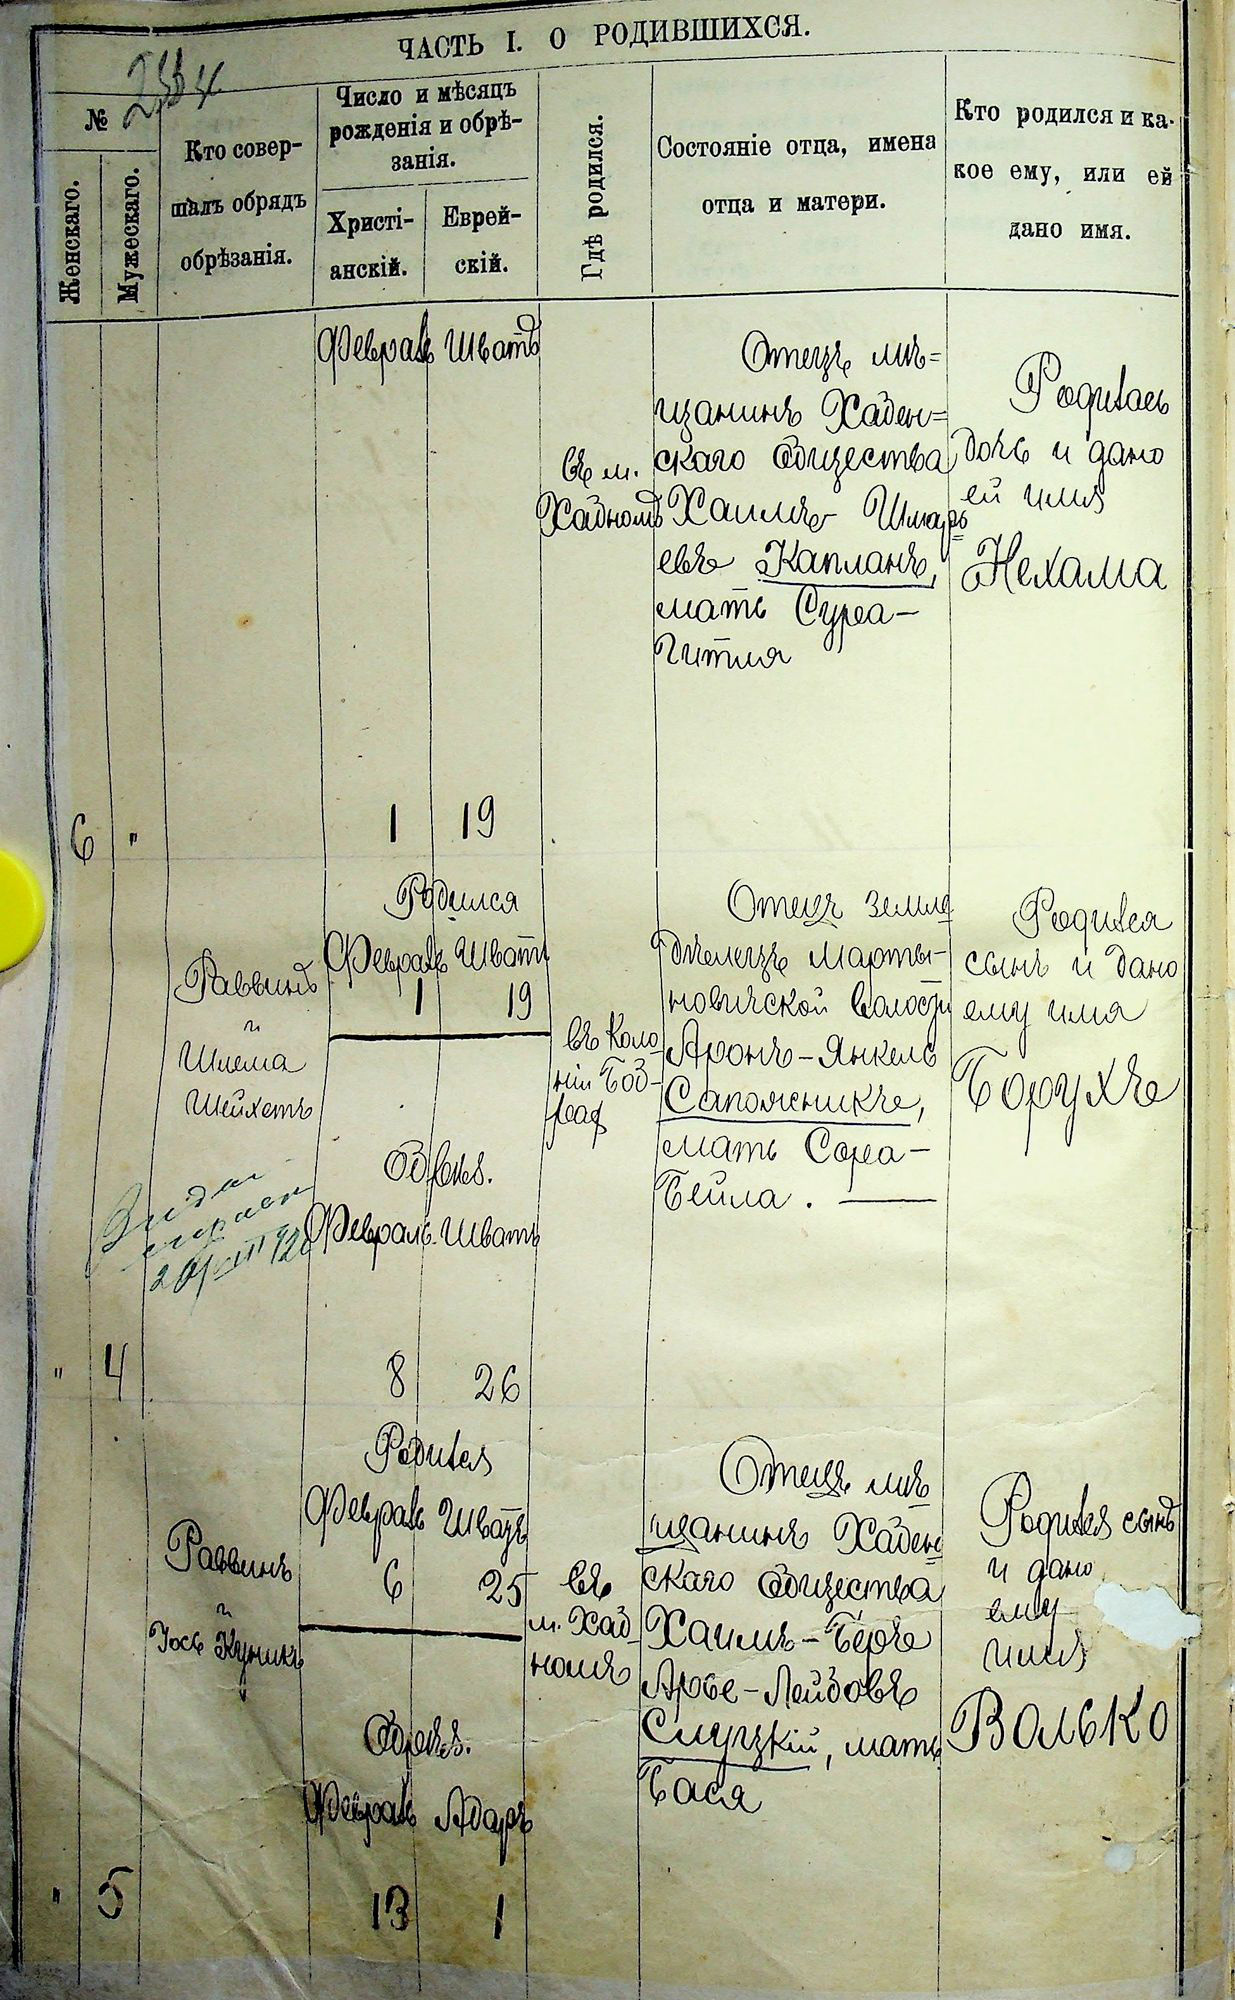 ЧАСТЬ I. О РОДИВШИХСЯ.
№
Женскаго.
Мужескаго.
Кто совер-
шалъ обрядъ
обрѣзанія.
Число и мѣсяцъ
рожденія и обрѣ-
занія.
Христі-
анскій.
Еврей-
скій.
Гдѣ родился.
Состояніе отца, имена
отца и матери.
Кто родился и ка-
кое ему, или ей
дано имя.
6
"
Февраль Шватъ
1 19
въ м.
Хабномъ
Отецъ мѣ=
щанинъ Хабен=
скаго общества
Хаимъ- Шмарь
евъ Капланъ,
мать Сура-
Гитля
Родилась
дочь и дано
ей имя
Нехама
"
4
Раввинъ
и
Шлема
Шейхетъ
20/VIII
Родился
Февраль Шватъ
1 19
Обрѣз.
Февраль Шватъ
8 26
въ Коло-
ніи
Отецъ земле
дѣлецъ Марты-
новичской волости
Аронъ-Янкель
Сапожникъ,
мать Сора-
Бейла.
Родился
сынъ и дано
ему имя
Борухъ
"
5
Раввинъ
и
Іось Куникъ
Родился
Февраль Шватъ
6 25
Обрѣз.
Февраль Адаръ
13 1
въ
м. Хаб-
номъ
Отецъ мѣ
щанинъ Хабен
скаго общества
Хаимъ-Беръ
Арье-Лейбовъ
Слуцкій, мать
Бася
Родился сынъ
и дано
ему
имя
Волько